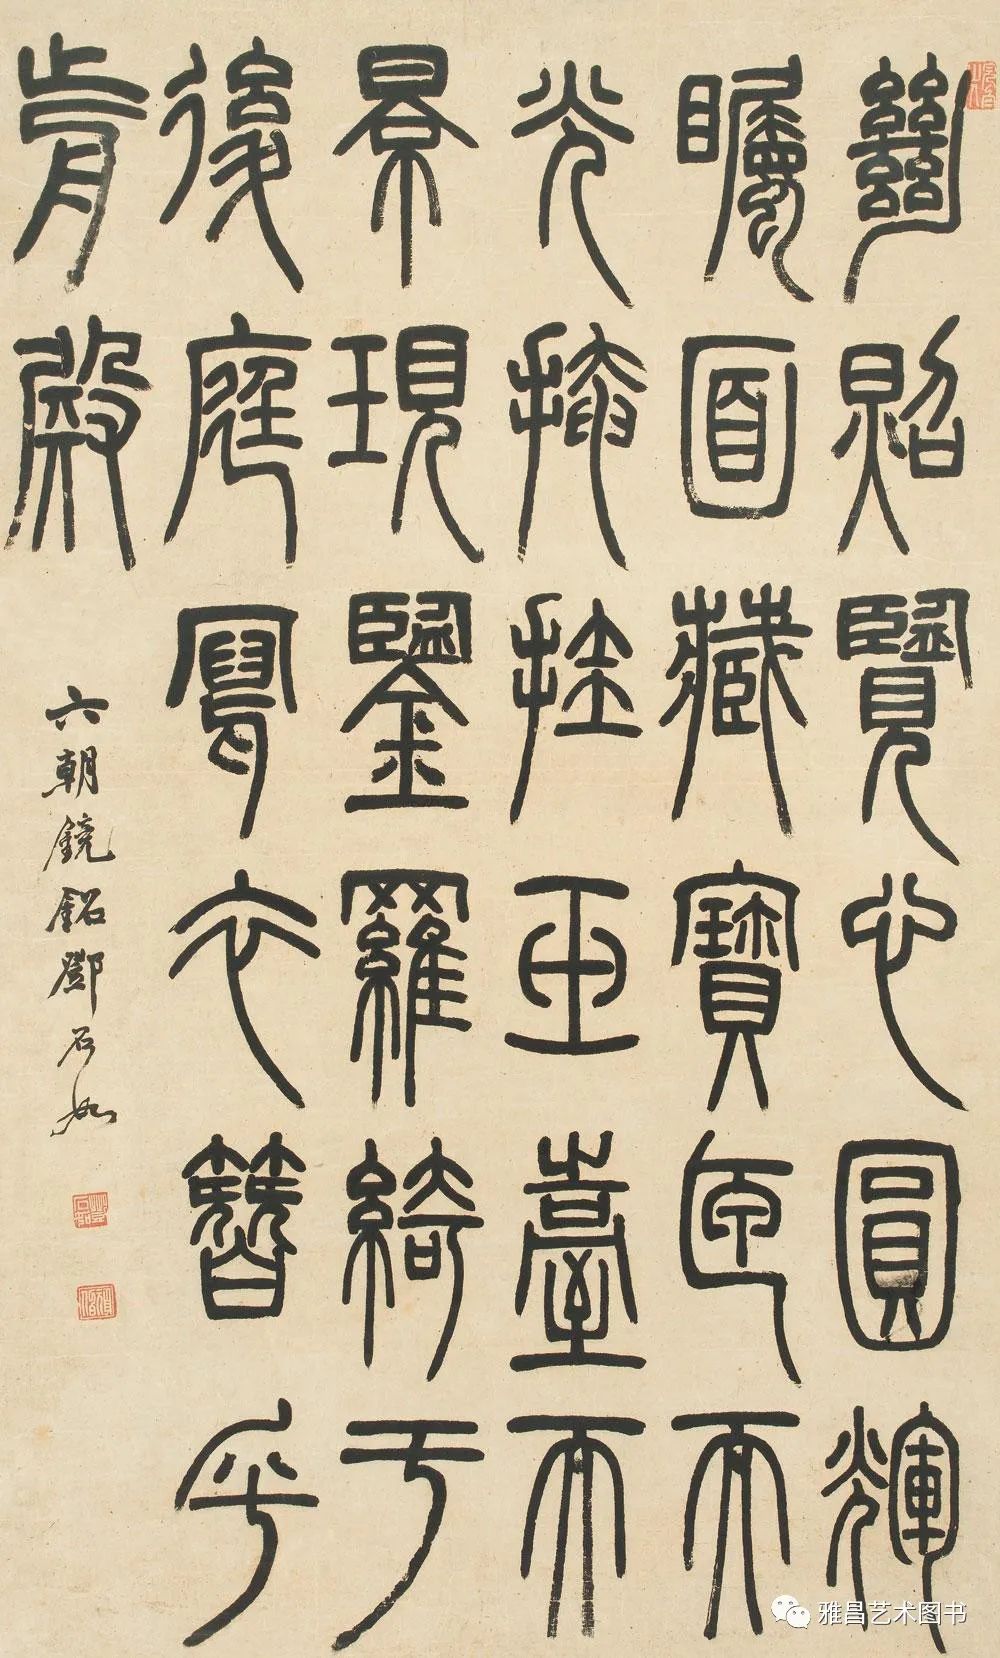 絕照覽心圓輝
矚面藏寶匣而
光掩挂玉臺而
景現鑒羅綺于
後庭寫衣簪乎
前殿
六朝鏡銘鄧石如
雅昌艺术图书